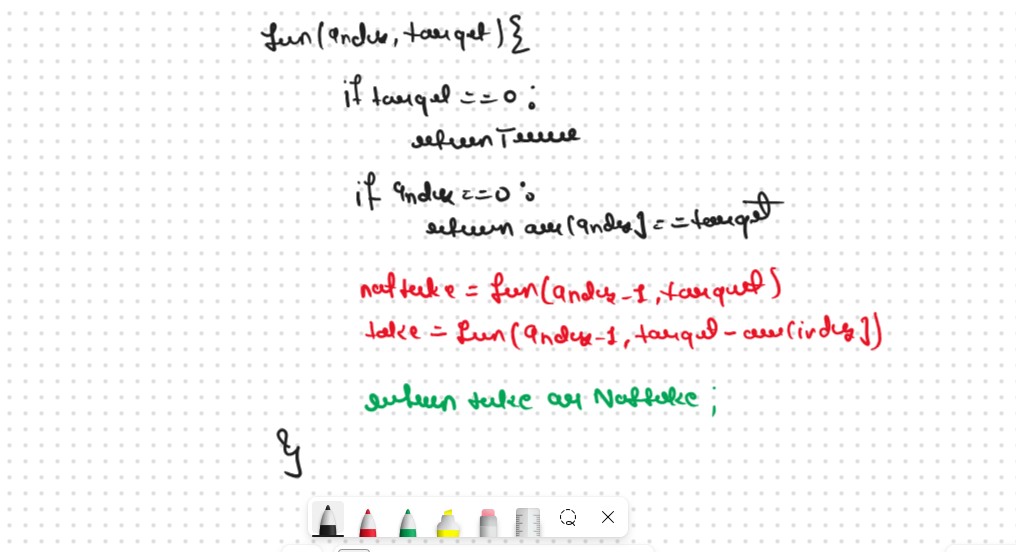 fun(index, target){
if target == 0 :
return True
if index == 0 :
return arr[index] == target
not take = fun(index-1, target)
take = fun(index-1, target - arr[index])
return take or Nottake ;
}